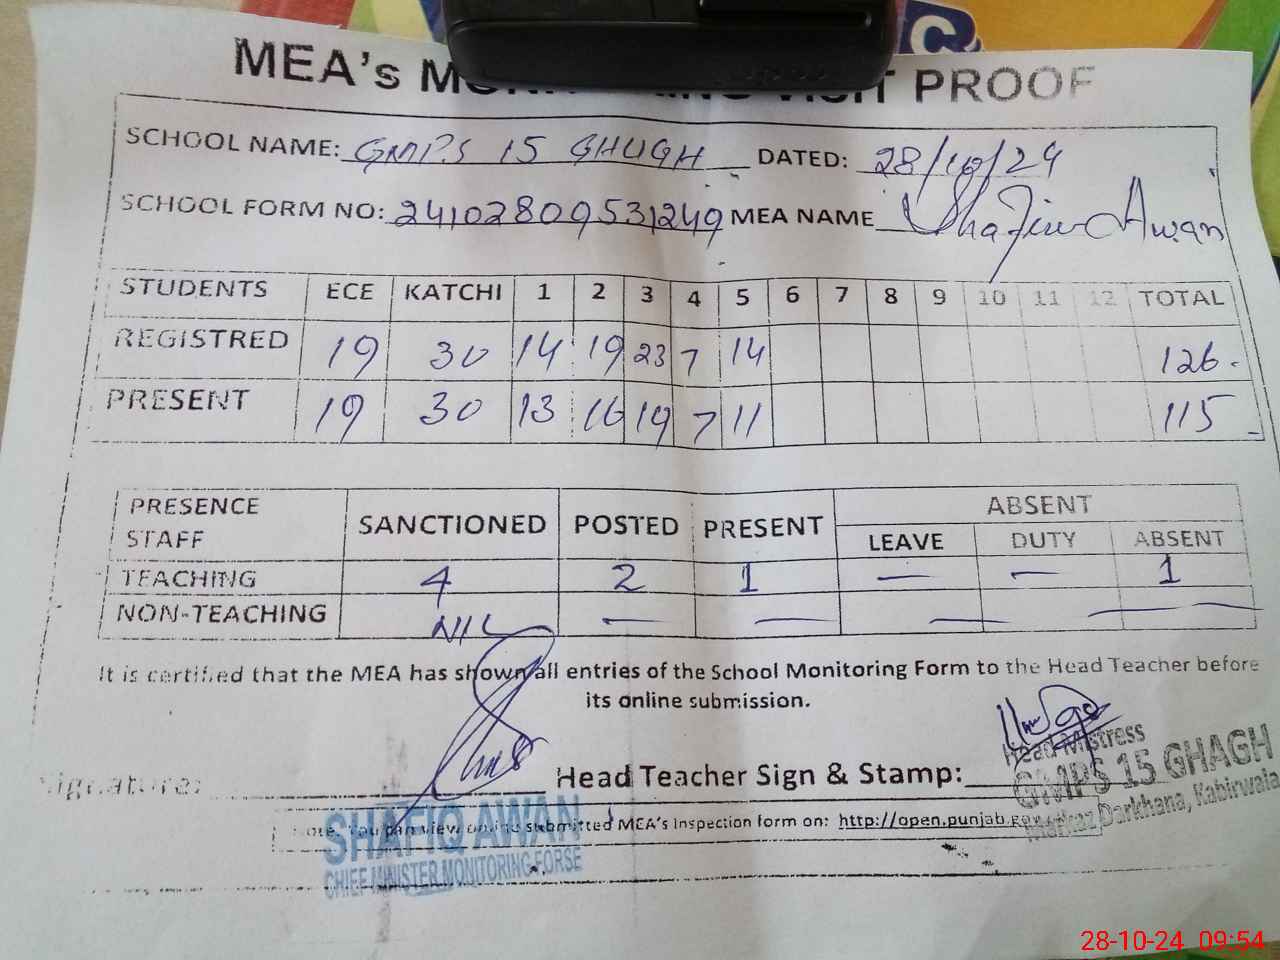 C
MEA's MONITORING VISIT PROOF
SCHOOL NAME: GMPS 15 GHUGH DATED: 28/10/24
SCHOOL FORM NO: 24102809531249 MEA NAME Shafiq Awan
STUDENTS ECE KATCHI 1 2 3 4 5 6 7 8 9 10 11 12 TOTAL
REGISTRED 19 30 14 19 23 7 14 126
PRESENT 19 30 13 16 19 7 11 115
PRESENCE STAFF SANCTIONED POSTED PRESENT ABSENT
LEAVE DUTY ABSENT
TEACHING 4 2 1 — — 1
NON-TEACHING NIL — — — —
It is certified that the MEA has shown all entries of the School Monitoring Form to the Head Teacher before
its online submission.
Signature: Head Teacher Sign & Stamp:
Head Mistress
GMPS 15 GHAGH
Markaz Darkhana, Kabirwala
Note: You can view online submitted MEA's Inspection form on: http://open.punjab.gov
SHAFIQ AWAN
CHIEF MINISTER MONITORING FORSE
28-10-24 09:54